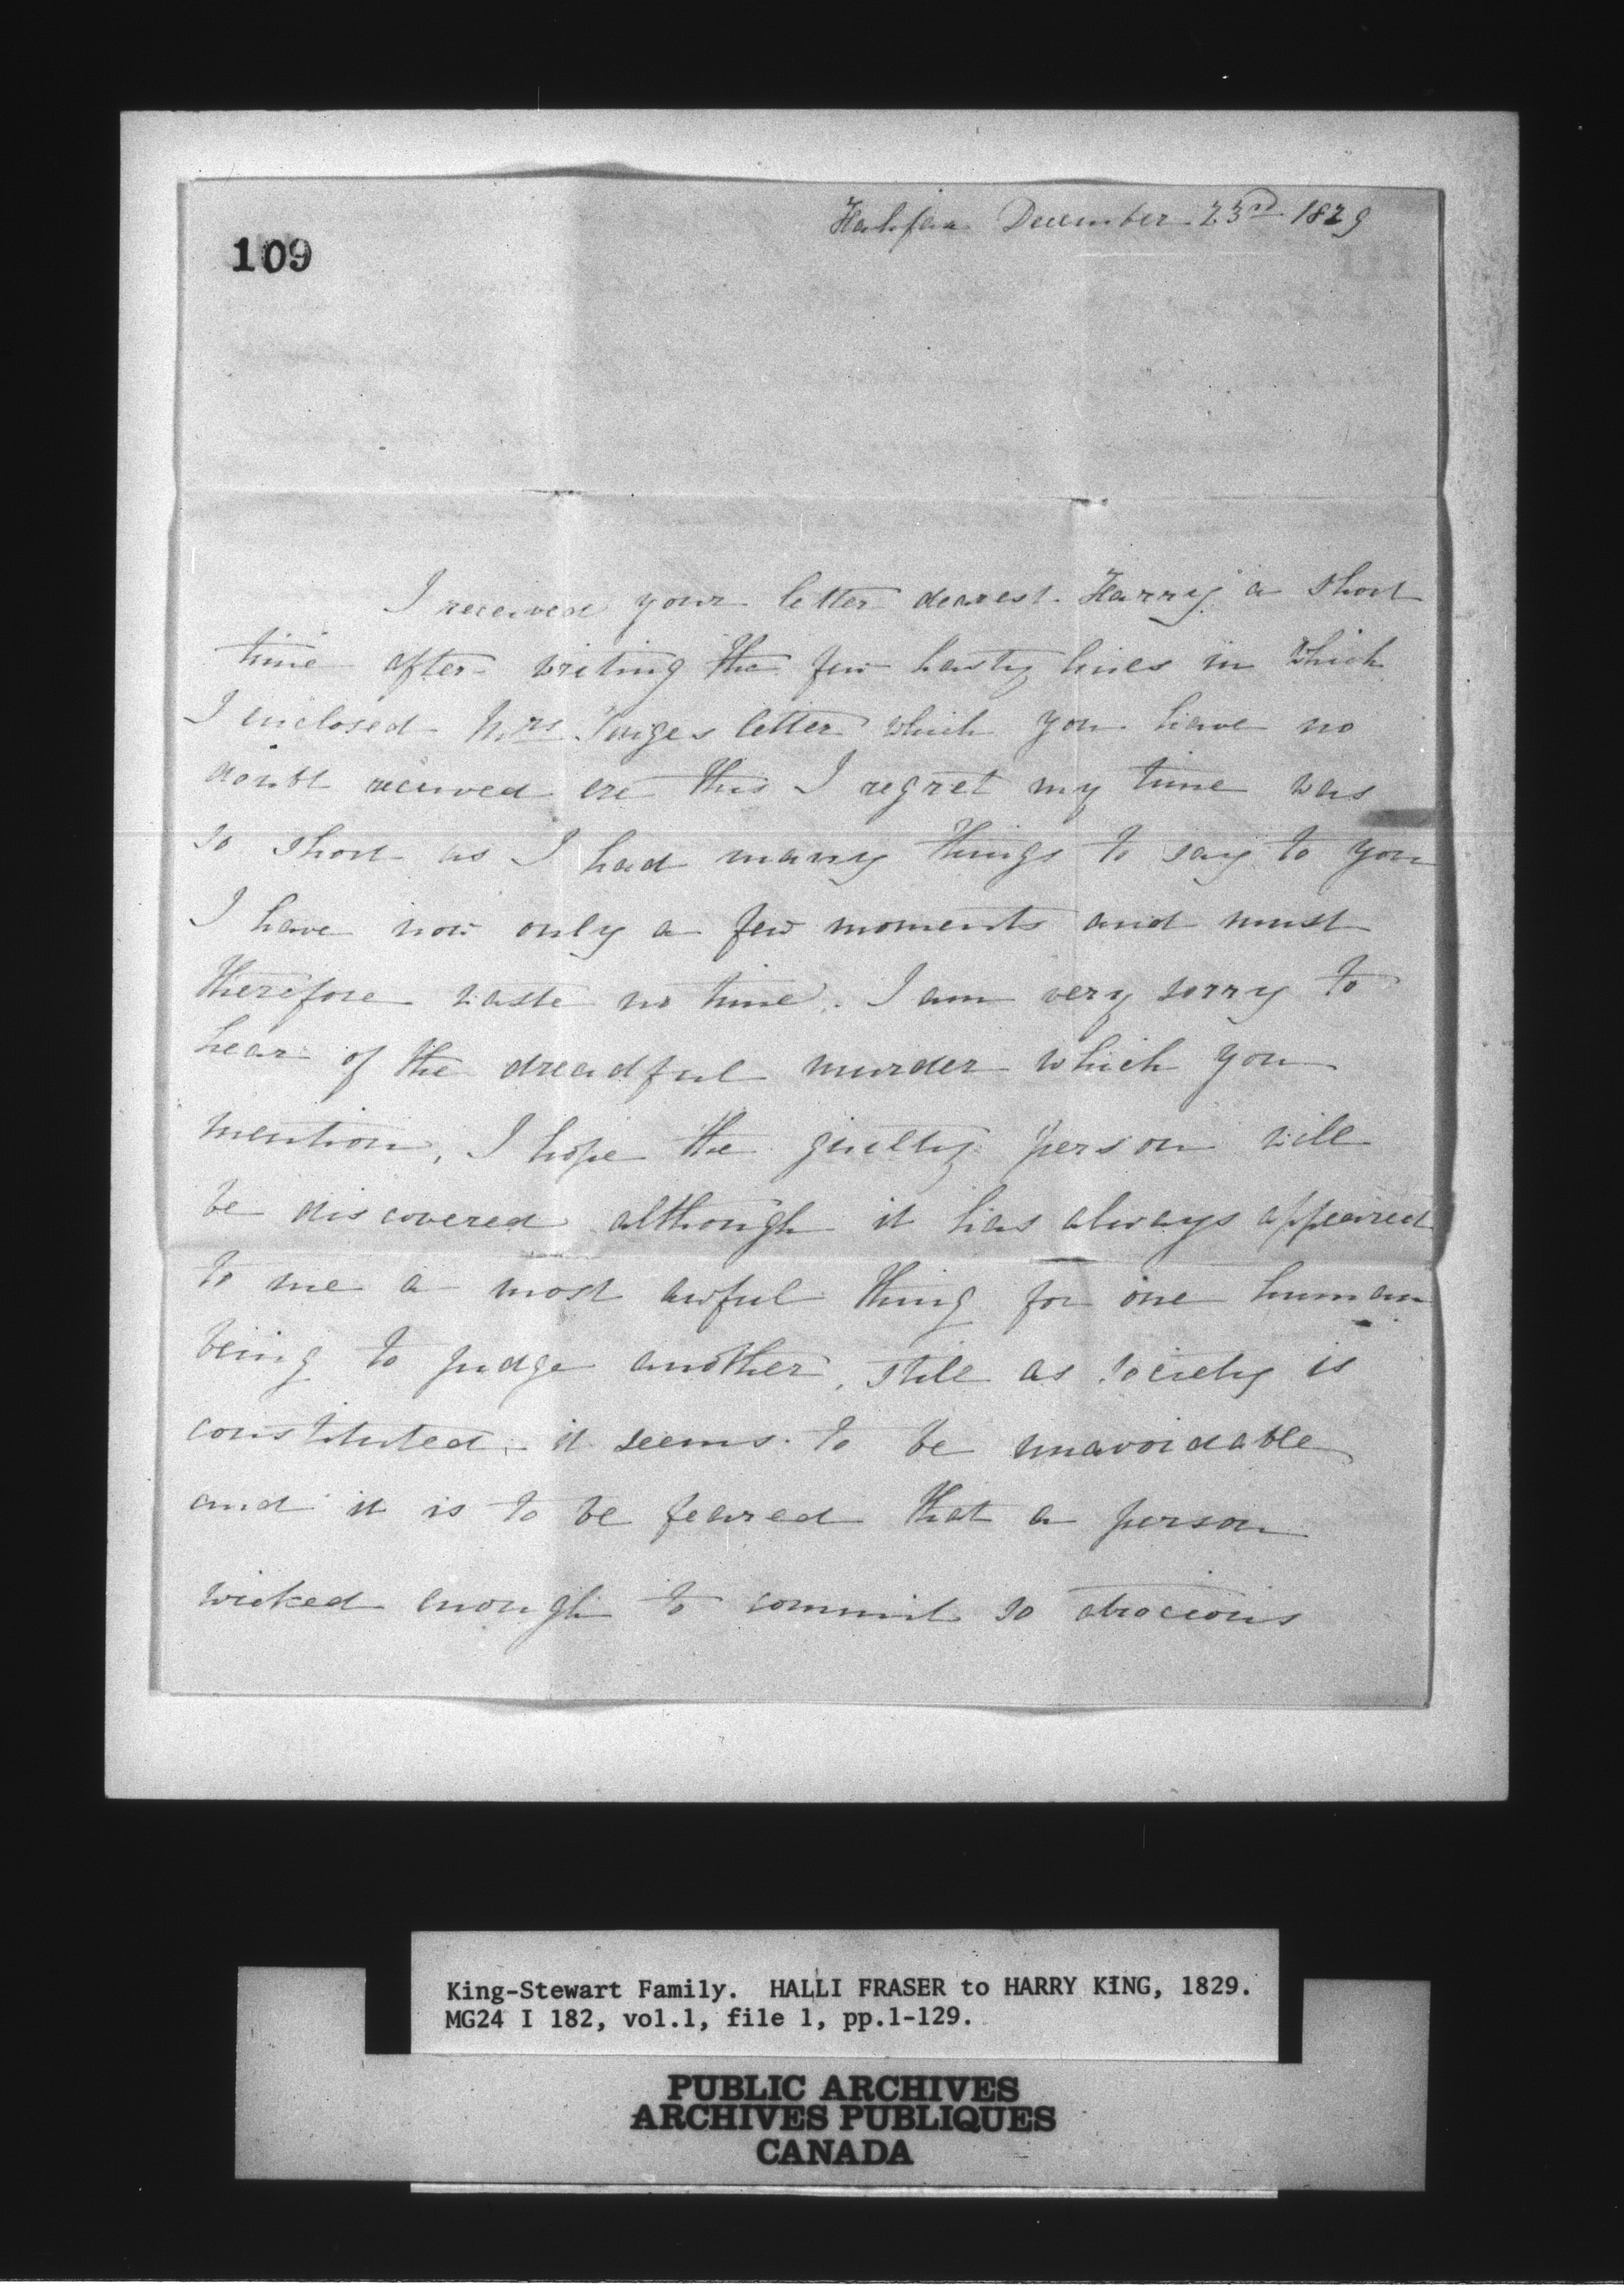 Halifax December 23rd 1829
109
I received your letter dearest Harry a short
time after writing the few hasty lines in which
I enclosed Mrs letter which you have no
doubt received ere this I regret my time was
so short as I had many things to say to you
I have now only a few moments and must
therefore waste no time. I am very sorry to
hear of the dreadful murder which you
mention, I hope the guilty person will
be discovered although it has always appeared
to me a most awful thing for one human
being to judge another, still as society is
constituted it seems to be unavoidable
and it is to be feared that a person
wicked enough to commit so atrocious
King-Stewart Family. HALLI FRASER to HARRY KING, 1829.
MG24 I 182, vol.1, file 1, pp.1-129.
PUBLIC ARCHIVES
ARCHIVES PUBLIQUES
CANADA